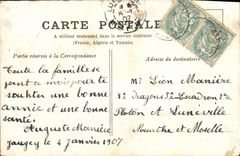 CARTE POSTALE
A utiliser seulement dans le service intérieur
(France, Algérie et Tunisie)
Partie réservée à la Correspondance
Adresse du destinataire
Toute la famille se
joint a moi pour te
souhiter une bonne
année et une bonne
santé.
Auguste Manière
4 janvier 1907
Mr Léon Manière
Dragons 3e Escadron 2e
Peloton à Lunéville
Meurthe et Moselle